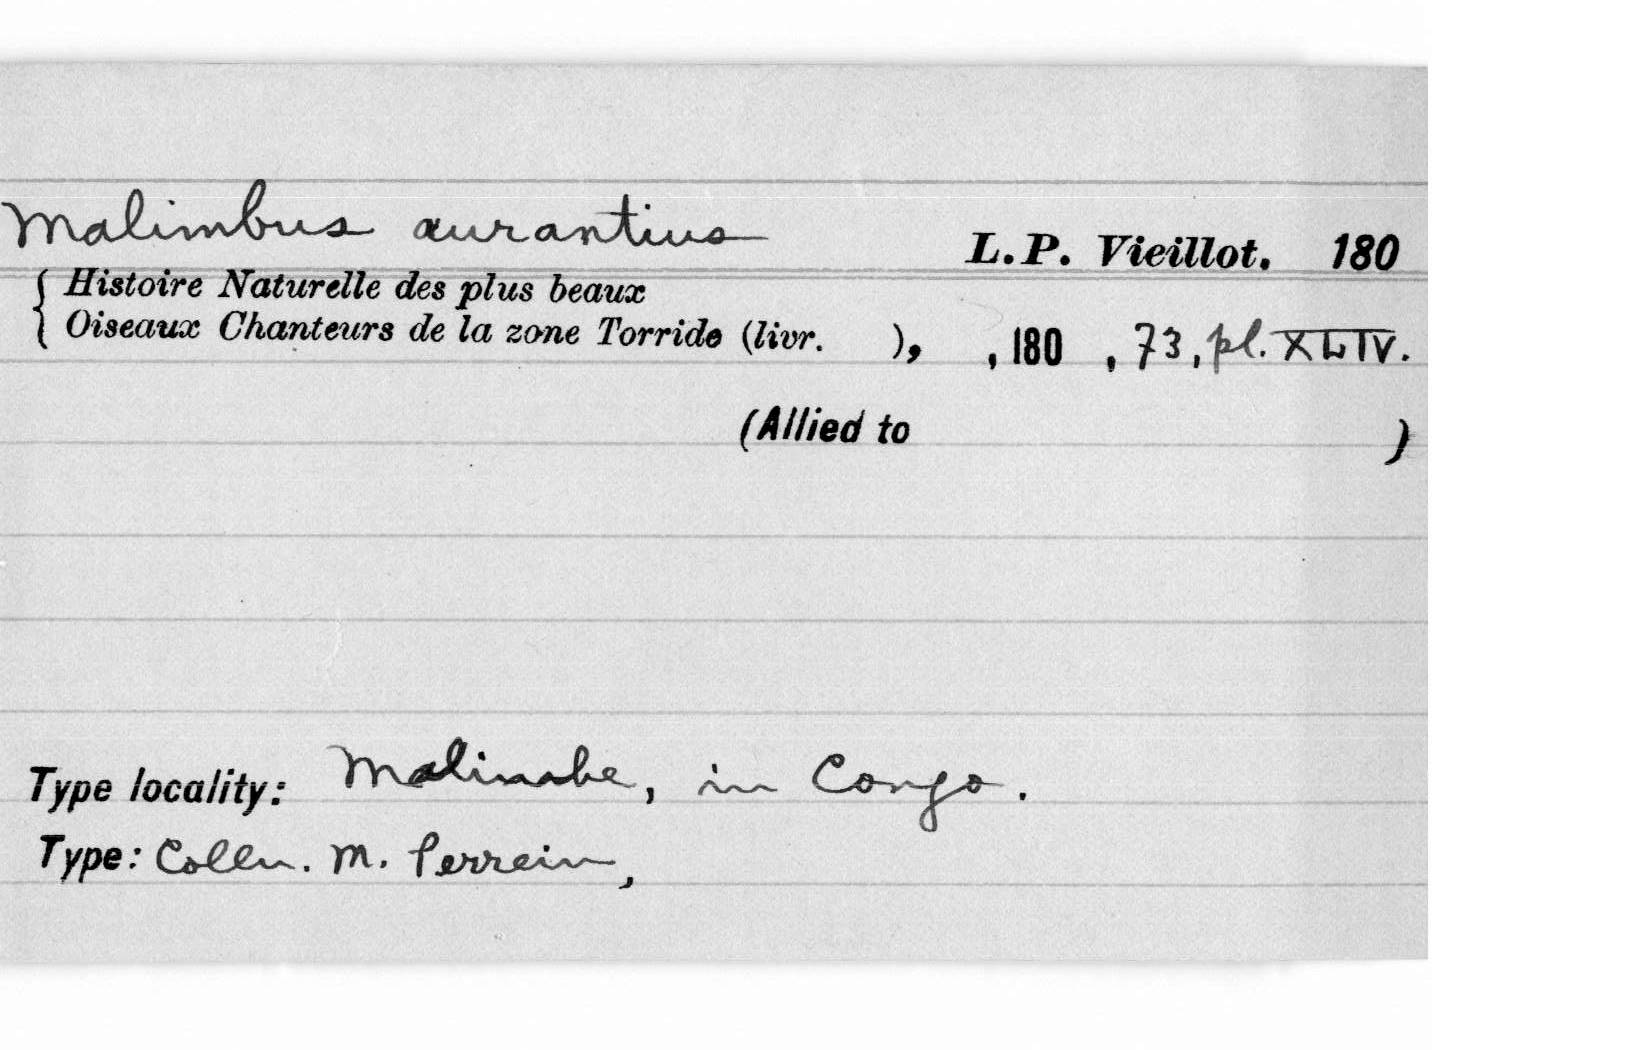 Malimbus aurantius L.P. Vieillot. 180
Histoire Naturelle des plus beaux
Oiseaux Chanteurs de la zone Torride (livr. ), , 180 , 73, pl. XLIV.
(Allied to )
Type locality: Malimbe, in Congo.
Type: Colln. M. Perrein,